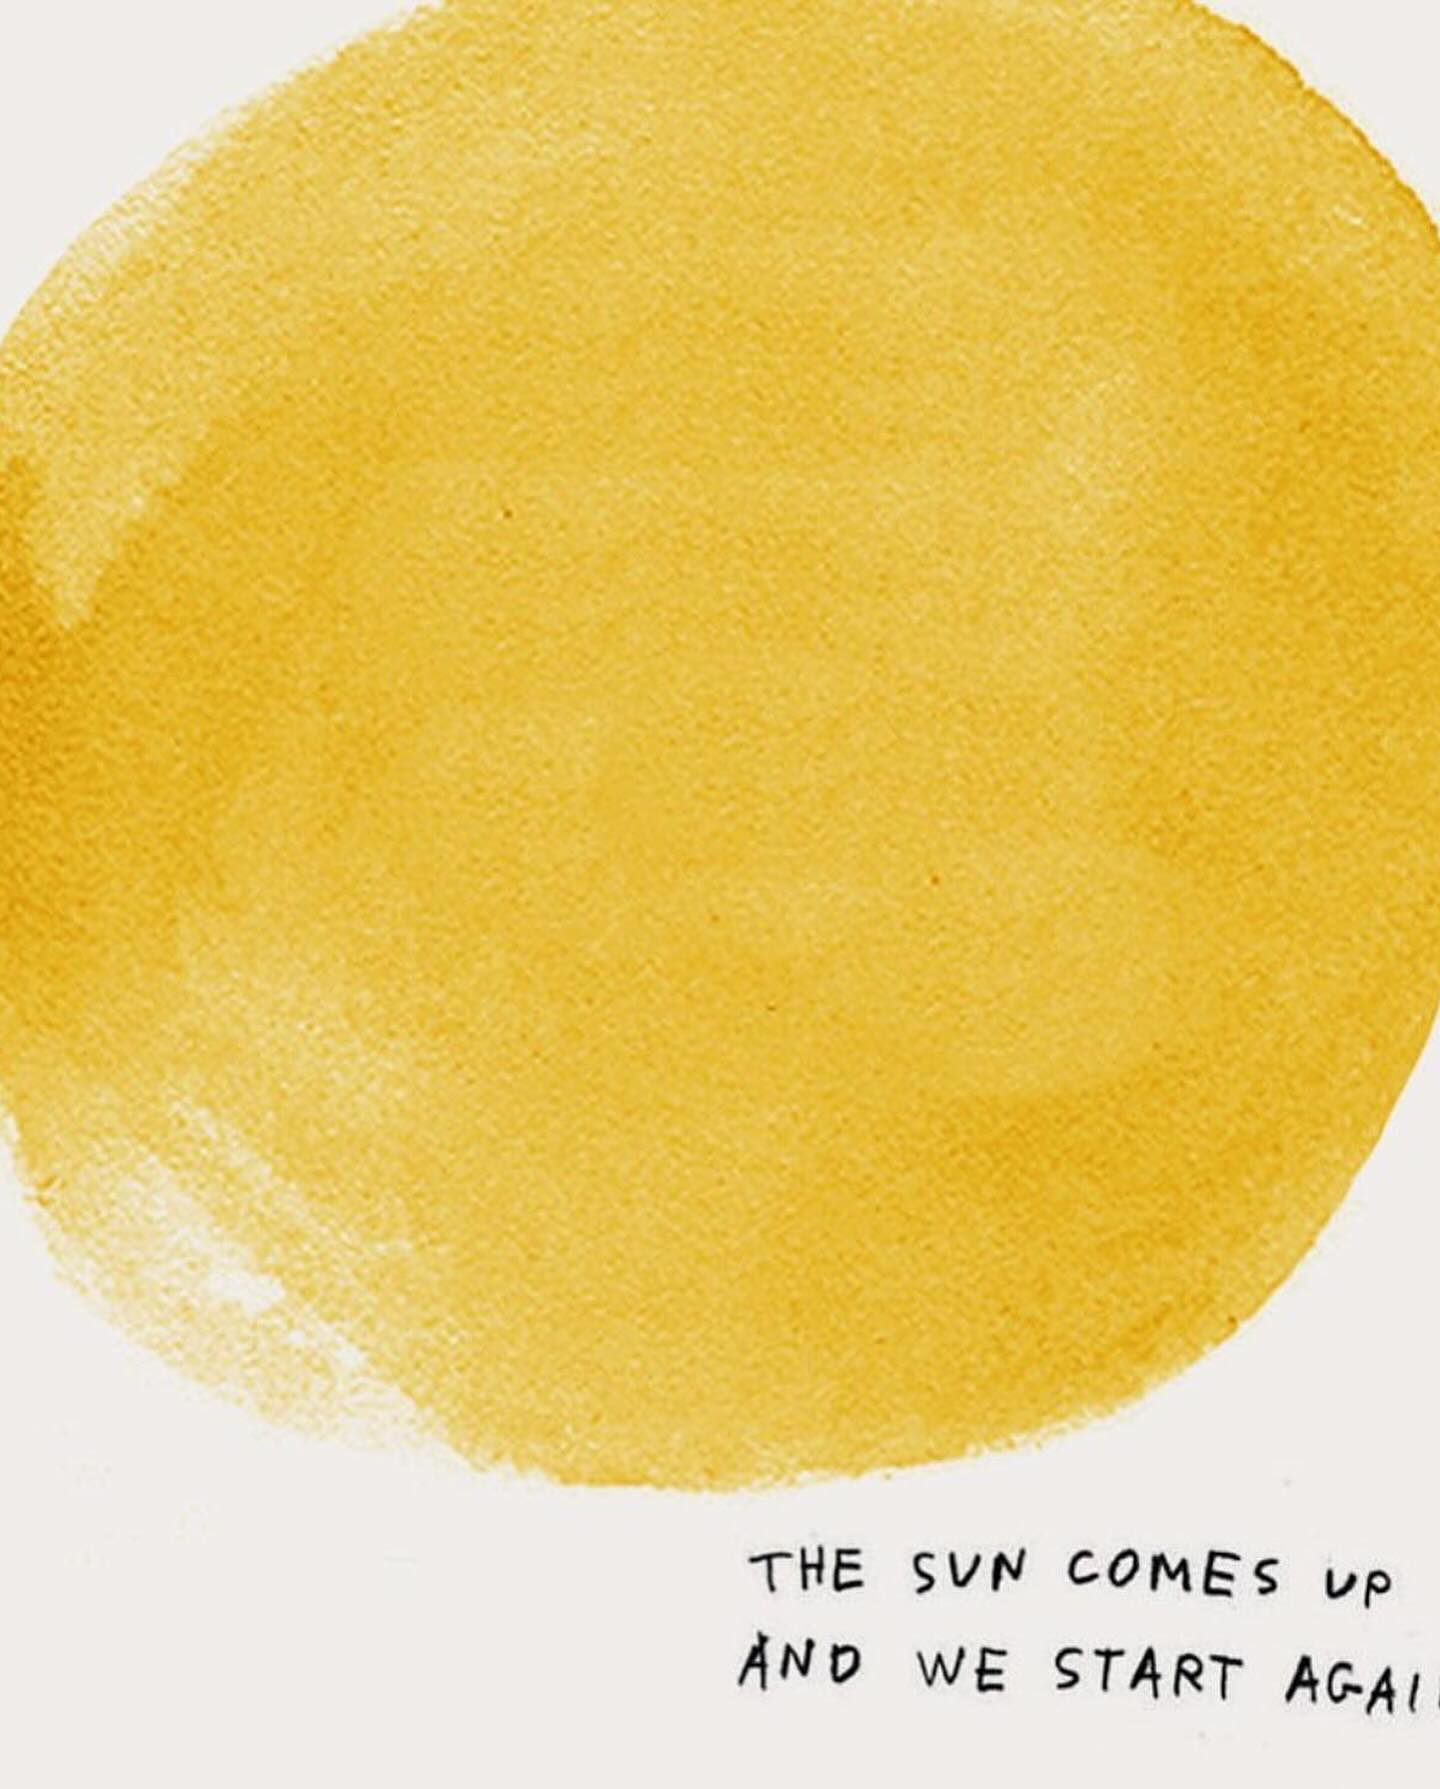 THE SUN COMES UP
AND WE START AGAI